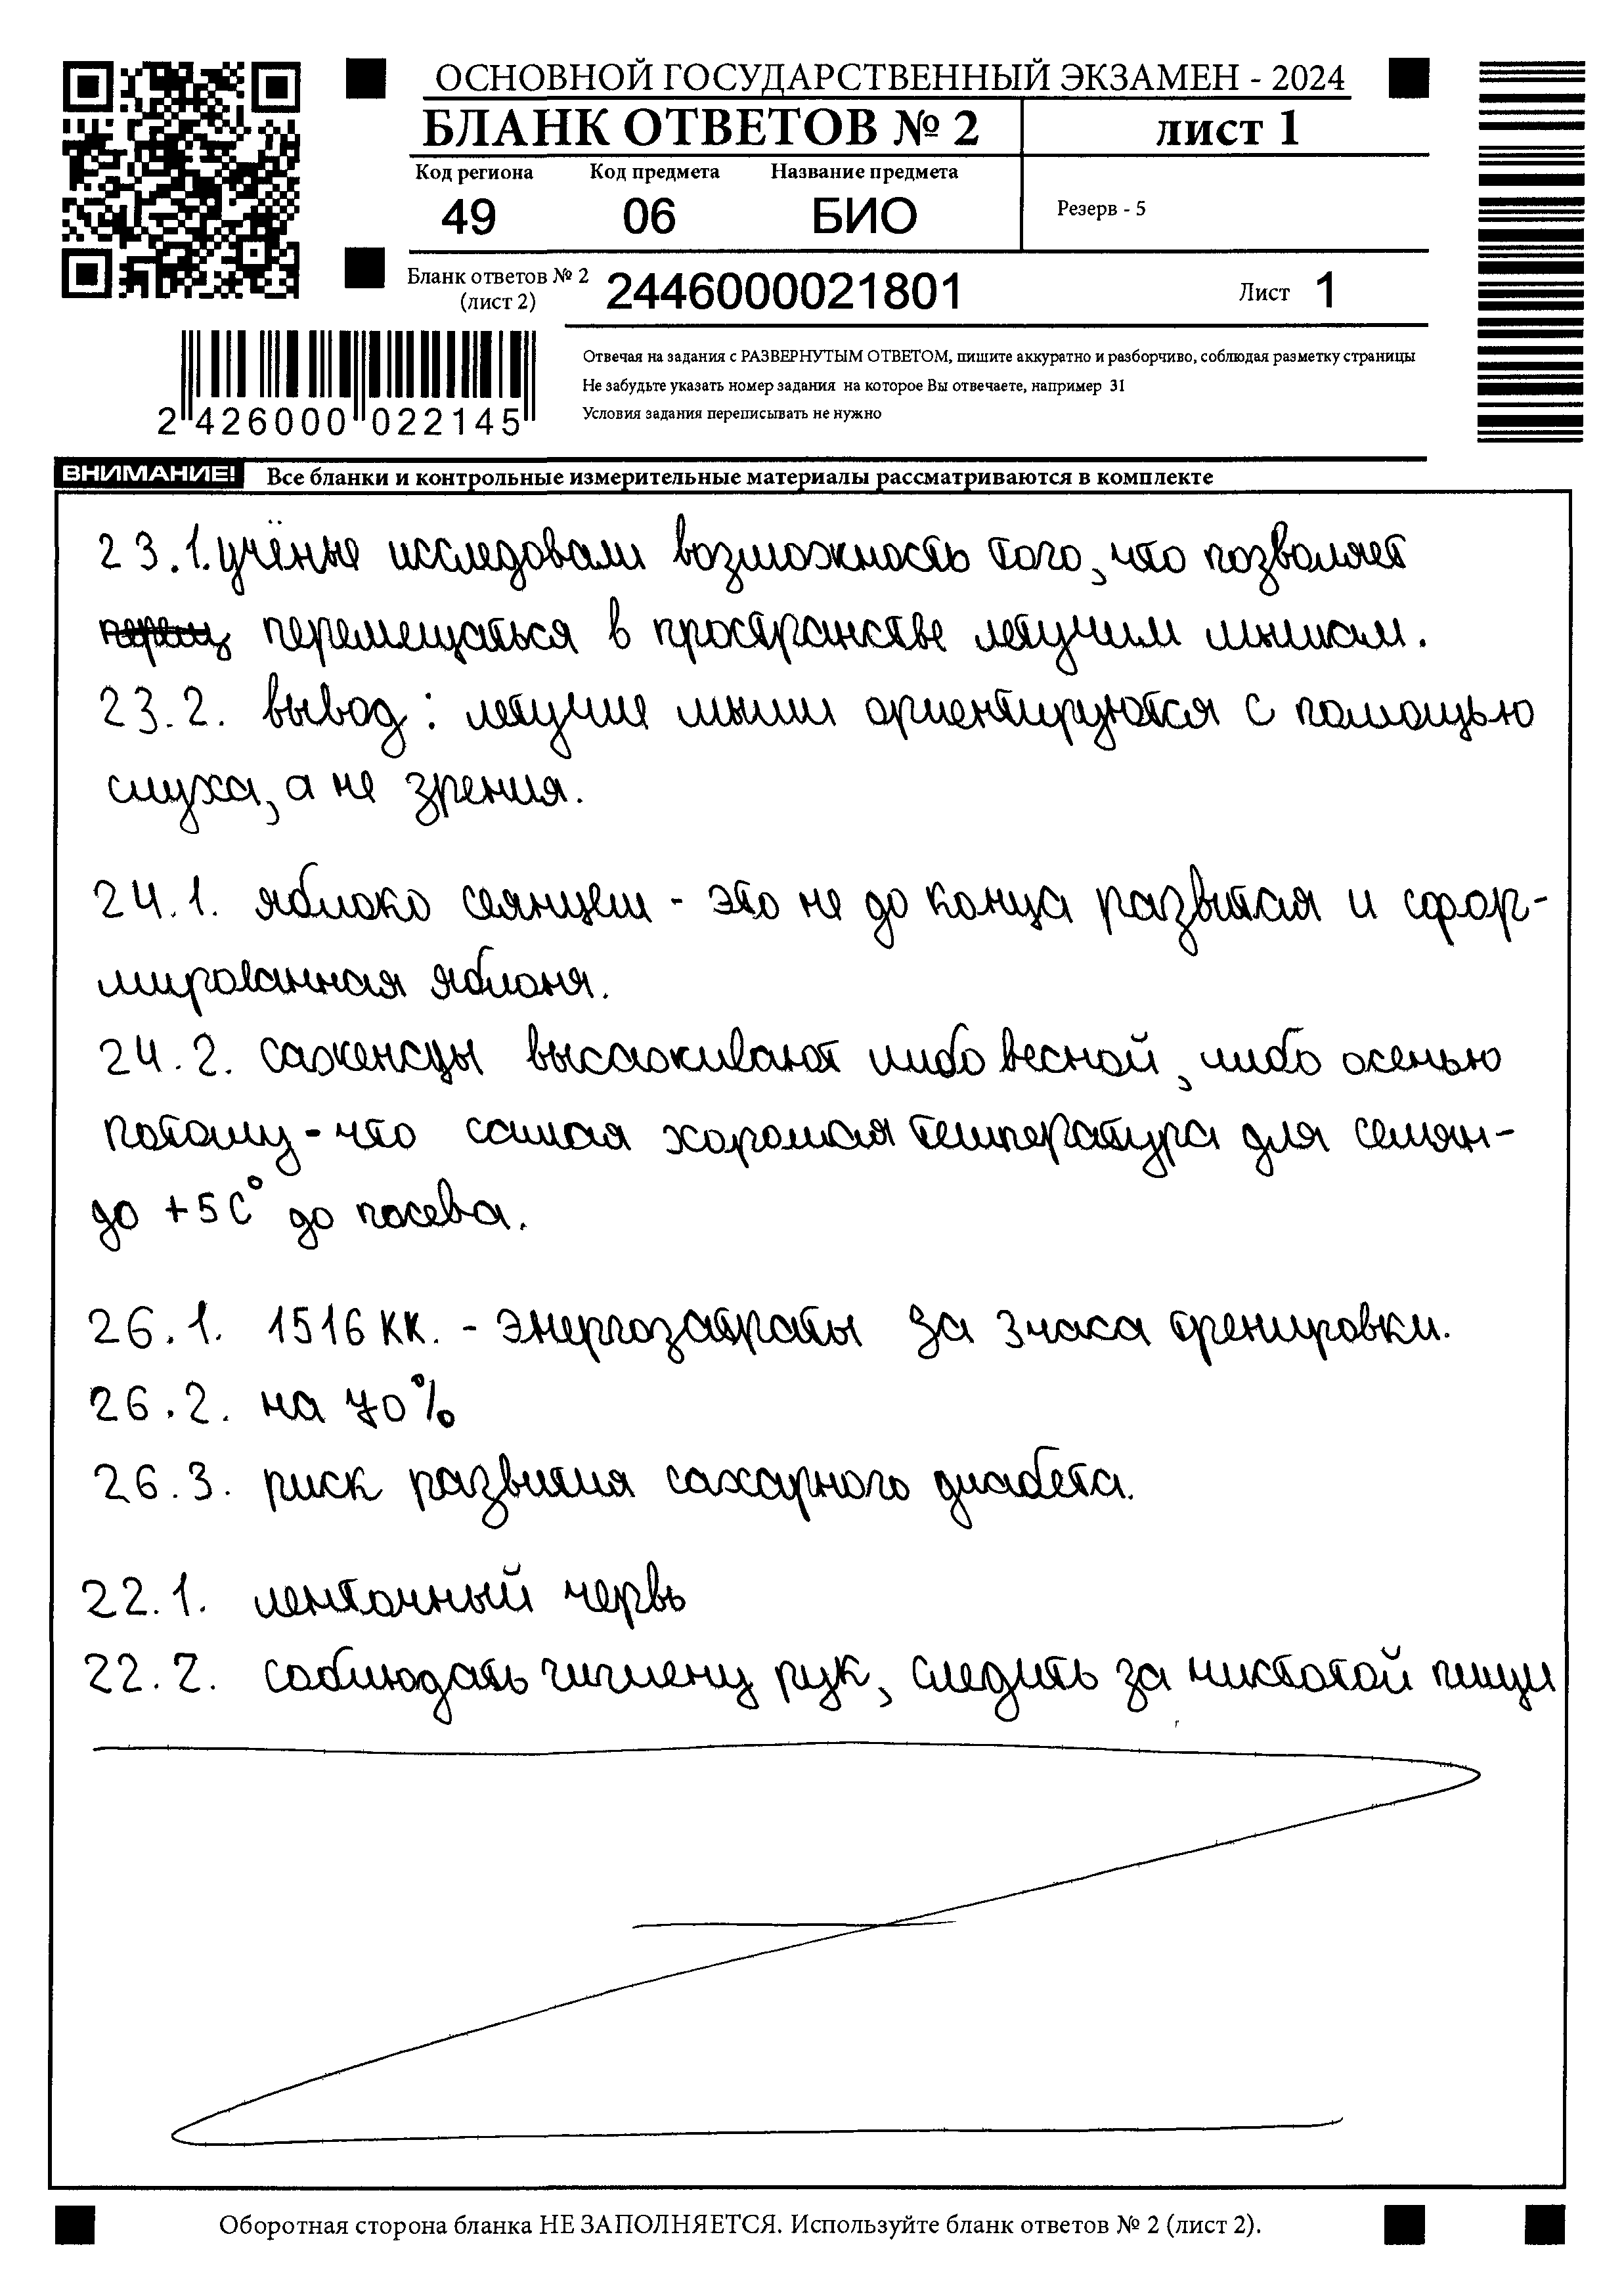 ОСНОВНОЙ ГОСУДАРСТВЕННЫЙ ЭКЗАМЕН - 2024
БЛАНК ОТВЕТОВ № 2
лист 1
Код региона Код предмета Название предмета
49 06 БИО
Резерв - 5
Бланк ответов № 2
(лист 2)
2446000021801
Лист 1
2 426000 022145
Отвечая на задания с РАЗВЕРНУТЫМ ОТВЕТОМ, пишите аккуратно и разборчиво, соблюдая разметку страницы
Не забудьте указать номер задания на которое Вы отвечаете, например 31
Условия задания переписывать не нужно
ВНИМАНИЕ! Все бланки и контрольные измерительные материалы рассматриваются в комплекте
23.1. учёные исследовали возможность того, что позволяет
перемещаться в пространстве летучим мышам.
23.2. вывод: летучие мыши ориентируются с помощью
слуха, а не зрения.
24.1. яблоко сеянцем - это не до конца развитая и сфор-
мированная яблоня.
24.2. саженцы высаживают либо весной, либо осенью
потому-что самая хорошая температура для семян-
до +5 С° до посева.
26.1. 1516 кк. - энергозатраты за 3 часа тренировки.
26.2. на 70%
26.3. риск развития сахарного диабета.
22.1. ленточный червь
22.2. соблюдать гигиену рук, следить за чистотой пищи
Оборотная сторона бланка НЕ ЗАПОЛНЯЕТСЯ. Используйте бланк ответов № 2 (лист 2).